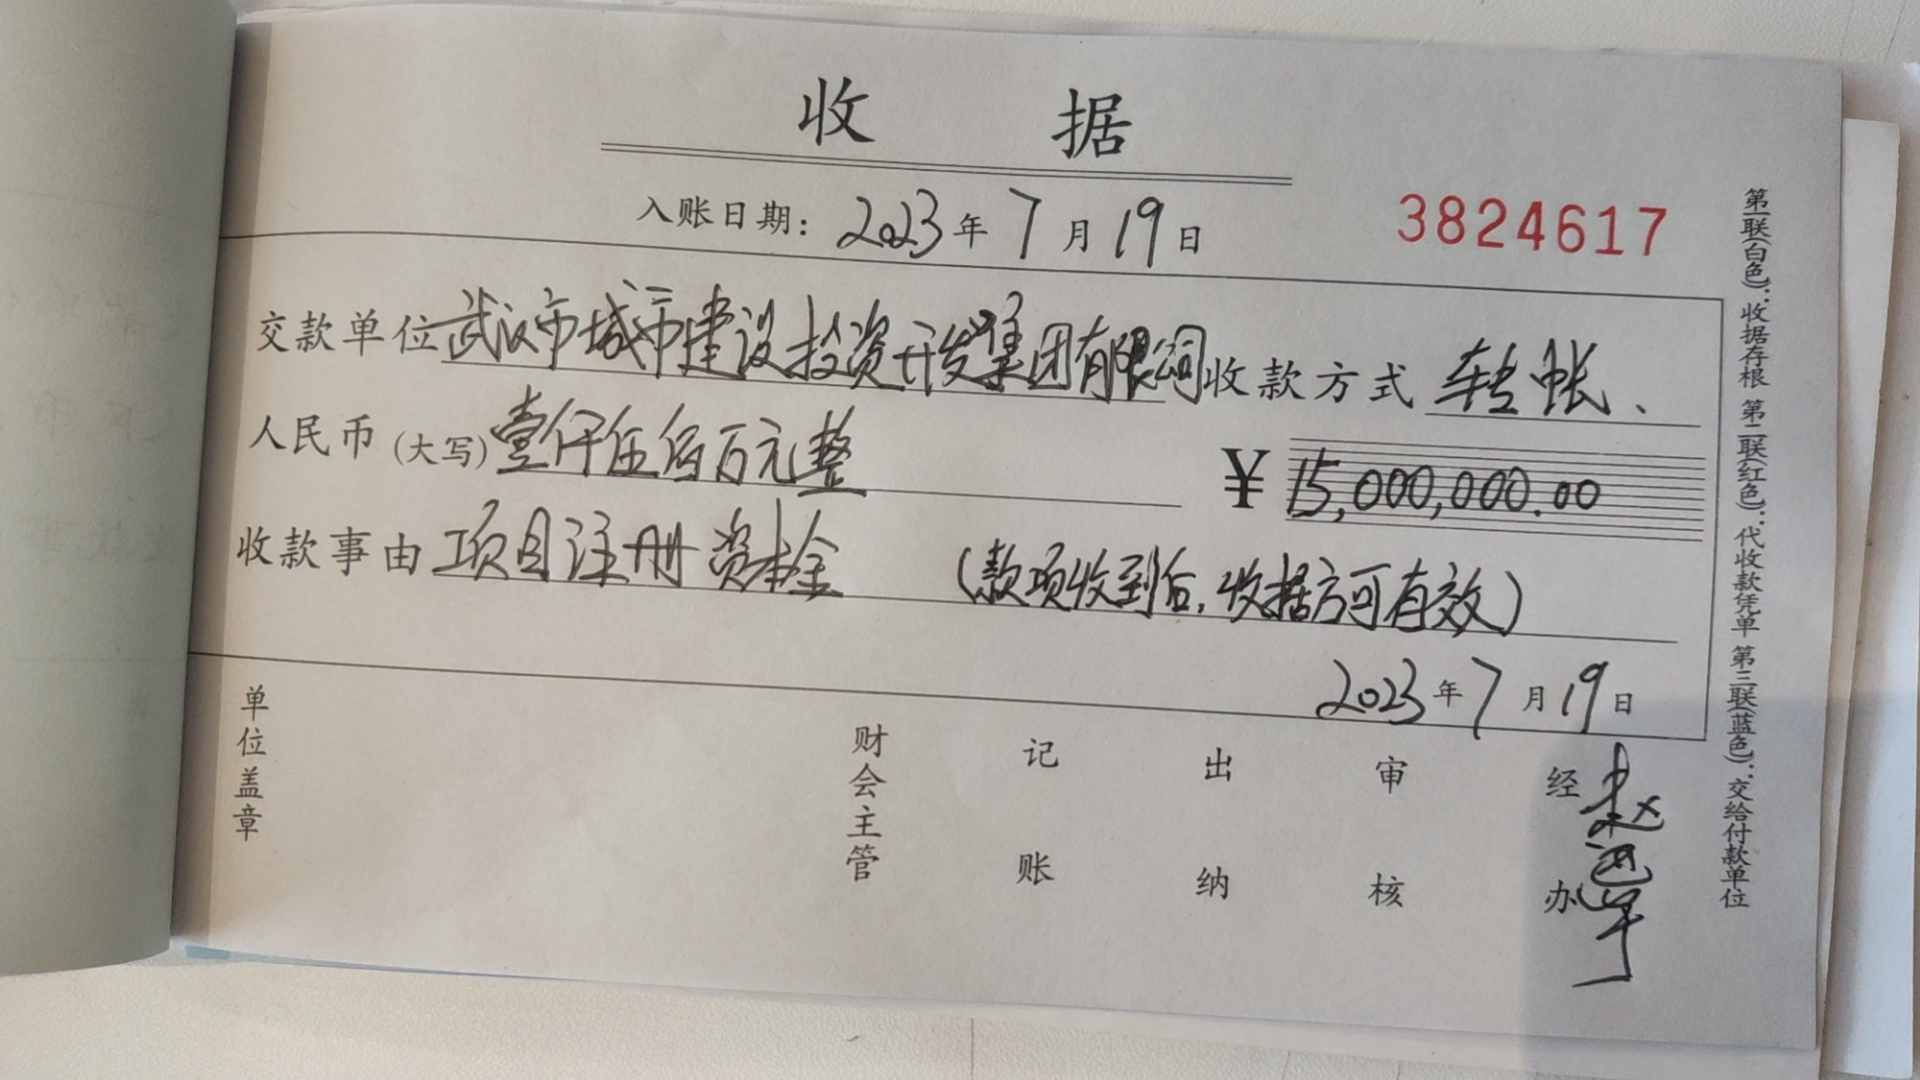 收据
入账日期：2023年7月19日
3824617
交款单位武汉市城市建设投资开发集团有限公司收款方式转帐、
人民币(大写)壹仟伍佰万元整 ¥15,000,000.00
收款事由项目注册资本金 (款项收到后,收据方可有效)
2023年7月19日
单位盖章
财会主管
记账
出纳
审核
经办赵
第一联(白色)：收据存根 第二联(红色)：代收款凭单 第三联(蓝色)：交给付款单位